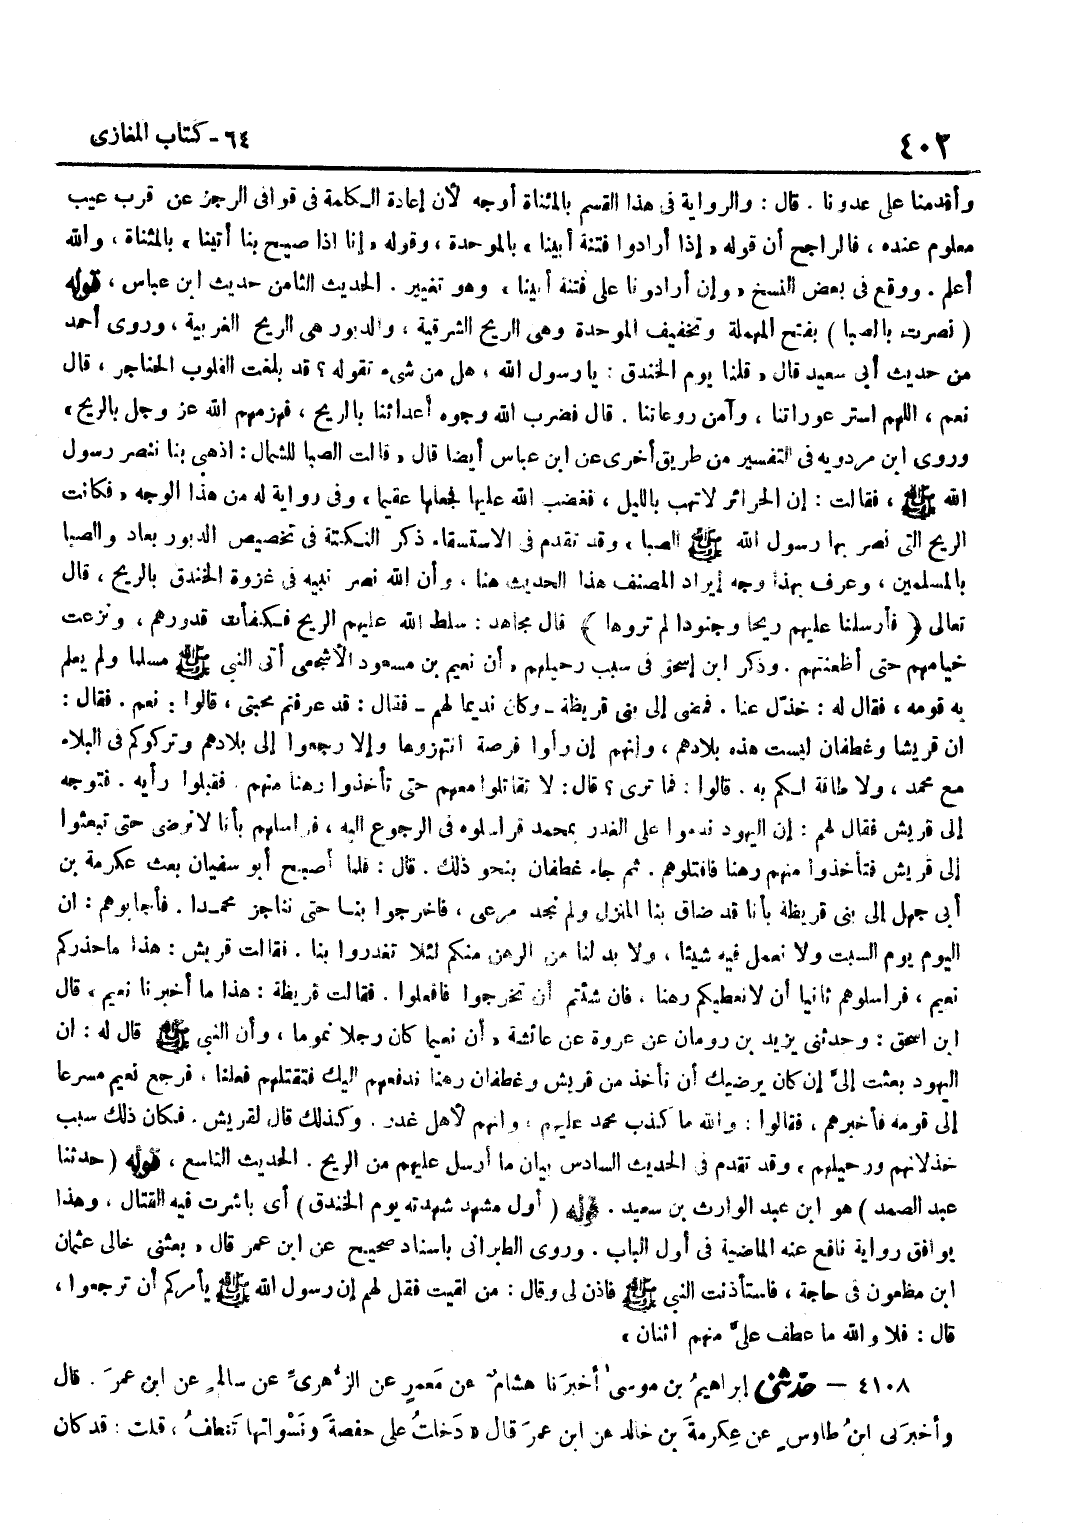 ٤٠٢
٦٤ - كتاب المغازى
وأقدمنا على عدونا . قال : والرواية فى هذا القسم بالمثناة أوجه لأن إعادة الكلمة فى قوافى الرجز عن قرب عيب
معلوم عنده ، فالراجح أن قوله « إذا أرادوا فتنة أبينا » بالموحدة ، وقوله « إنا اذا صيح بنا أتينا » بالمثناة ، والله
أعلم . ووقع فى بعض النسخ « وإن أرادونا على فتنة أبينا » وهو تغيير . الحديث الثامن حديث ابن عباس ، قوله
( نصرت بالصبا ) بفتح المهملة وتخفيف الموحدة وهى الريح الشرقية ، والدبور هى الريح الغربية ، وروى أحمد
من حديث أبى سعيد قال « قلنا يوم الخندق : يا رسول الله ، هل من شىء تقوله ؟ قد بلغت القلوب الحناجر ، قال
نعم ، اللهم استر عوراتنا ، وآمن روعاتنا . قال فضرب الله وجوه أعدائنا بالريح ، فهزمهم الله عز وجل بالريح »
وروى ابن مردويه فى التفسير من طريق أخرى عن ابن عباس أيضا قال « قالت الصبا للشمال : اذهبى بنا ننصر رسول
الله ﷺ ، فقالت : إن الحرائر لا تهب بالليل ، فغضب الله عليها فجعلها عقيما ، وفى رواية له من هذا الوجه « فكانت
الريح التى نصر بها رسول الله ﷺ الصبا ، وقد تقدم فى الاستسقاء ذكر النكتة فى تخصيص الدبور بعاد والصبا
بالمسلمين ، وعرف بهذا وجه إيراد المصنف هذا الحديث هنا ، وأن الله نصر نبيه فى غزوة الخندق بالريح ، قال
تعالى ﴿ فأرسلنا عليهم ريحا وجنودا لم تروها ﴾ قال مجاهد : سلط الله عليهم الريح فكفأت قدورهم ، ونزعت
خيامهم حتى أظعنتهم . وذكر ابن إسحق فى سبب رحيلهم « أن نعيم بن مسعود الأشجعى أتى النبى ﷺ مسلما ولم يعلم
به قومه ، فقال له : خذّل عنا . فمضى إلى بنى قريظة - وكان نديما لهم - فقال : قد عرفتم محبتى ، قالوا : نعم . فقال :
ان قريشا وغطفان ليست هذه بلادهم ، وانهم إن رأوا فرصة انتهزوها وإلا رجعوا إلى بلادهم وتركوكم فى البلاء
مع محمد ، ولا طاقة لكم به . قالوا : فما ترى ؟ قال : لا تقاتلوا معهم حتى تأخذوا رهنا منهم . فقبلوا رأيه . فتوجه
إلى قريش فقال لهم : إن اليهود ندموا على الغدر بمحمد فراسلوه فى الرجوع اليه ، فراسلهم بأنا لا نرضى حتى تبعثوا
إلى قريش فتأخذوا منهم رهنا فاقتلوهم . ثم جاء غطفان بنحو ذلك . قال : فلما أصبح أبو سفيان بعث عكرمة بن
أبى جهل إلى بنى قريظة بأنا قد ضاق بنا المنزل ولم نجد مرعى ، فاخرجوا بنا حتى نناجز محمدا . فأجابوهم : ان
اليوم يوم السبت ولا نعمل فيه شيئا ، ولا بد لنا من الرهن منكم لئلا تغدروا بنا . فقالت قريش : هذا ما حذركم
نعيم ، فراسلوهم ثانيا أن لا نعطيكم رهنا ، فان شئتم أن تخرجوا فافعلوا . فقالت قريظة : هذا ما أخبرنا نعيم » قال
ابن اسحق : وحدثنى يزيد بن رومان عن عروة عن عائشة « أن نعيما كان رجلا نموما ، وأن النبى ﷺ قال له : ان
اليهود بعثت إلىّ إن كان يرضيك أن نأخذ من قريش وغطفان رهنا ندفعهم اليك فتقتلهم فعلنا ، فرجع نعيم مسرعا
إلى قومه فأخبرهم ، فقالوا : والله ما كذب محمد عليهم ، وانهم لأهل غدر . وكذلك قال لقريش . فكان ذلك سبب
خذلانهم ورحيلهم ، وقد تقدم فى الحديث السادس بيان ما أرسل عليهم من الريح . الحديث التاسع ، قوله ( حدثنا
عبد الصمد ) هو ابن عبد الوارث بن سعيد . قوله ( أول مشهد شهدته يوم الخندق ) أى باشرت فيه القتال ، وهذا
يوافق رواية نافع عنه الماضية فى أول الباب . وروى الطبرانى باسناد صحيح عن ابن عمر قال « بعثنى خالى عثمان
ابن مظعون فى حاجة ، فاستأذنت النبى ﷺ فاذن لى وقال : من لقيت فقل لهم إن رسول الله ﷺ يأمركم أن ترجعوا ،
قال : فلا والله ما عطف علىّ منهم اثنان »
٤١٠٨ - حدّثنى إبراهيمُ بن موسى أخبرَنا هشامٌ عن مَعمرٍ عن الزُّهرىِّ عن سالمٍ عن ابن عمرَ . قال
وأخبرَنى ابنُ طاوسٍ عن عِكرمةَ بن خالد عن ابن عمرَ قال « دَخلتُ على حفصةَ ونَسْواتها تَنطفُ ، قلت : قد كان